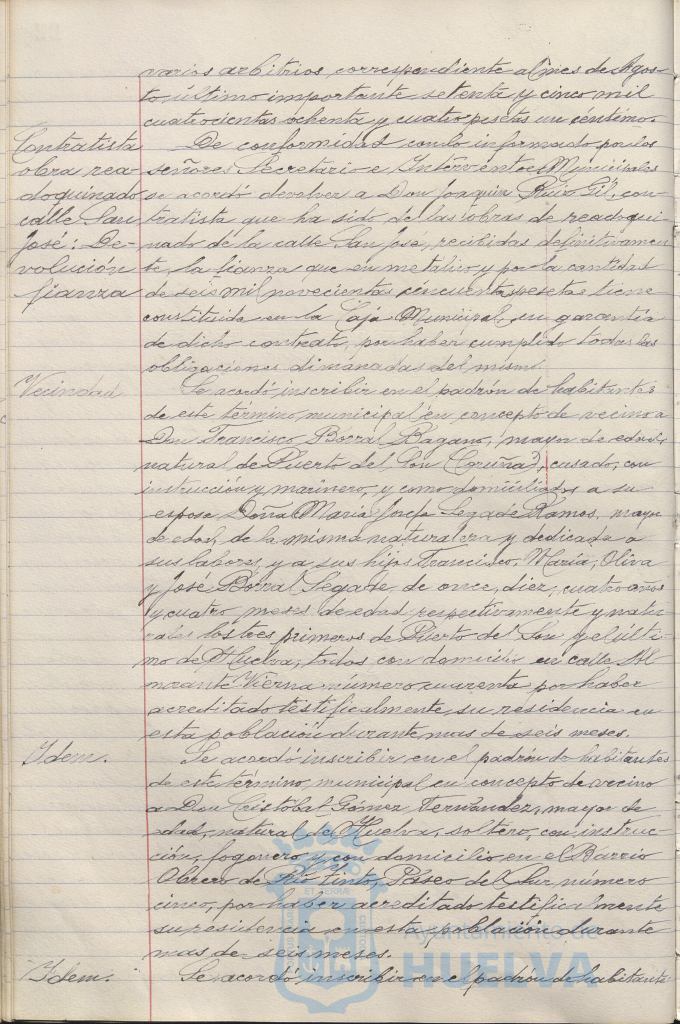 varios arbitrios correspondiente al mes de Agos-
to último importante setenta y cinco mil
cuatrocientas ochenta y cuatro pesetas un céntimo.
Contratista
obra rea-
doquinado
calle San
José: De-
volución
fianza
De conformidad con lo informado por los
señores Secretario e Interventor Municipales
se acordó devolver a Don Joaquín Ruiz Gil, con-
tratista que ha sido de las obras de readoqui-
nado de la calle San José, recibidas definitivamen-
te la fianza que en metálico y por la cantidad
de seis mil novecientas cincuenta pesetas tiene
constituida en la Caja Municipal en garantía
de dicho contrato, por haber cumplido todas las
obligaciones dimanadas del mismo.
Vecindad
Se acordó inscribir en el padrón de habitantes
de este término municipal en concepto de vecino a
Don Francisco Borral Bagano, mayor de edad,
natural de Puerto del Son (Coruña), casado, con
instrucción y marinero, y como domiciliados a su
esposa Doña María Josefa Segade Ramos, mayor
de edad, de la misma naturaleza y dedicada a
sus labores, y a sus hijos Francisco, María, Oliva
y José Borral Segade, de once, diez, cuatro años
y cuatro meses de edad respectivamente y natu-
rales los tres primeros de Puerto del Son y el últi-
mo de Huelva, todos con domicilio en calle Al-
mirante Vierna número cuarenta por haber
acreditado testificalmente su residencia en
esta población durante mas de seis meses.
Idem.
Se acordó inscribir en el padrón de habitantes
de este término municipal en concepto de vecino
a Don Cristóbal Gómez Fernández, mayor de
edad, natural de Huelva, soltero, con instruc-
ción, fogonero y con domicilio en el Barrio
Obrero de Rio Tinto, Paseo del Sur número
cinco, por haber acreditado testificalmente
su residencia en esta población durante
mas de seis meses.
Idem.
Se acordó inscribir en el padrón de habitantes
Ayuntamiento de
HUELVA